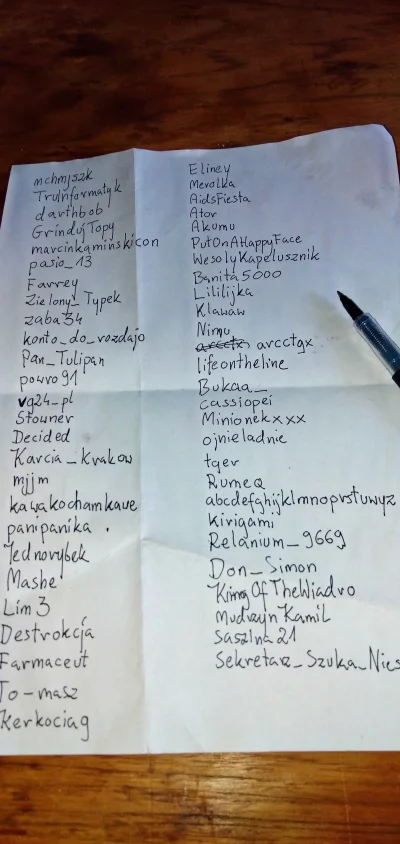 mchmjszk
TruInformatyk
darthbob
GrindujTopy
marcinkaminskicon
pasio_13
Farrey
Zielony_Typek
zaba34
konto_do_rozdajo
Pan_Tulipan
powro91
vg24_pl
Stowner
Decided
Karcia_krakow
mjjm
kawakochamkawe
panipanika.
Jednorybek
Mashe
Lim3
Destrokcja
Farmaceut
To-masz
Kerkociag
Eliney
Merolka
AidsFiesta
Ator
Akumu
PutOnAHappyFace
WesolyKapelusznik
Banita5000
Lililijka
Klawaw
Nimu
arcctx arcctgx
lifeontheline
Bukaa_
cassiopei
Minionekxxx
ojnieladnie
tger
Rumeq
abcdefghijklmnoprstuwyz
Kirigami
Relanium_9669
Don_Simon
KingOfTheWiadro
MudrzynKamil
saszina21
Sekretarz_Szuka_Nies